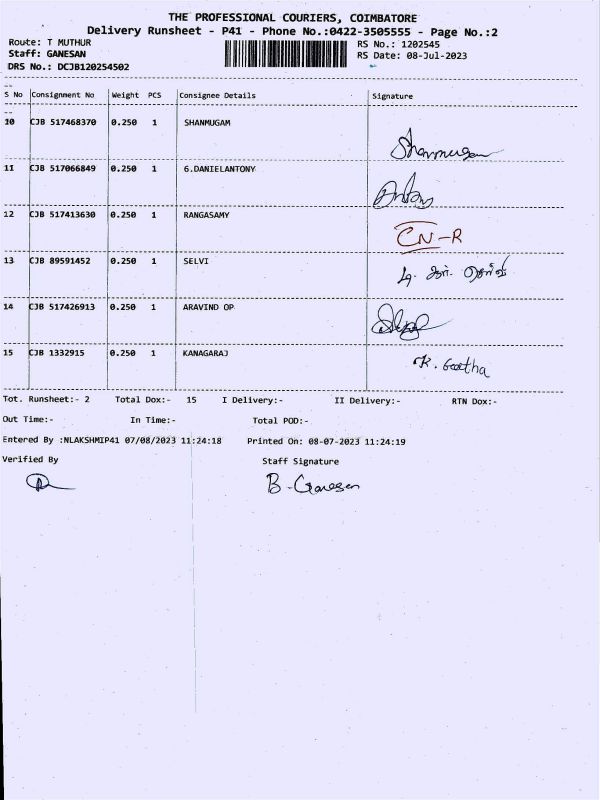 THE PROFESSIONAL COURIERS, COIMBATORE
Delivery Runsheet - P41 - Phone No.:0422-3505555 - Page No.:2
Route: T MUTHUR RS No.: 1202545
Staff: GANESAN RS Date: 08-Jul-2023
DRS No.: DCJB120254502
S No Consignment No Weight PCS Consignee Details Signature
10 CJB 517468370 0.250 1 SHANMUGAM Shanmugam
11 CJB 517066849 0.250 1 G.DANIELANTONY
12 CJB 517413630 0.250 1 RANGASAMY CN-R
13 CJB 89591452 0.250 1 SELVI
14 CJB 517426913 0.250 1 ARAVIND OP
15 CJB 1332915 0.250 1 KANAGARAJ K. Geetha
Tot. Runsheet:- 2 Total Dox:- 15 I Delivery:- II Delivery:- RTN Dox:-
Out Time:- In Time:- Total POD:-
Entered By :NLAKSHMIP41 07/08/2023 11:24:18 Printed On: 08-07-2023 11:24:19
Verified By Staff Signature
B. Ganesan